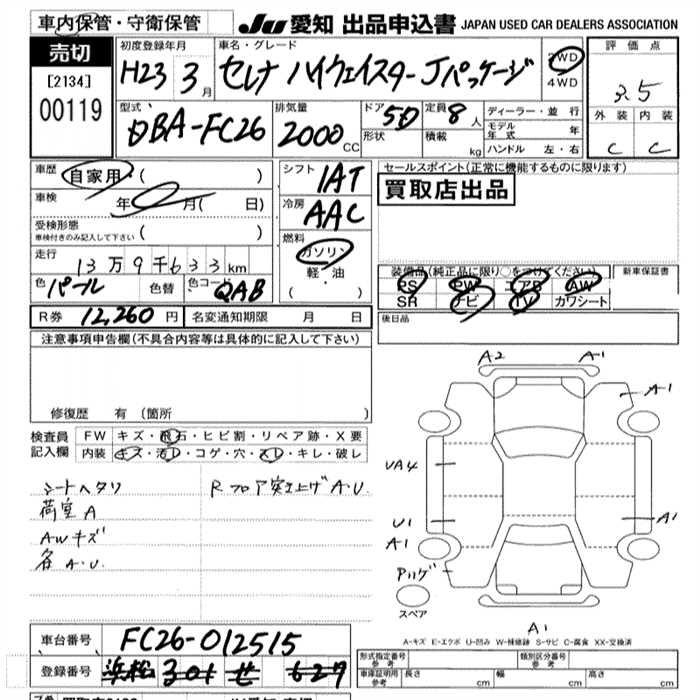 車内保管・守衛保管 JU 愛知 出品申込書 JAPAN USED CAR DEALERS ASSOCIATION
売切
[2134]
00119
初度登録年月 H23 3月
車名・グレード セレナ ハイウェイスター Jパッケージ
2WD
4WD
評価点 3.5
外装 内装
C C
型式 DBA-FC26
排気量 2000 CC
ドア 5D
形状
定員 8 人
積載 kg
ディーラー・並行
モデル年式 年
ハンドル 左・右
車歴 自家用・( )
車検 年 月( 日)
受検形態
車検付きのみ記入して下さい ( )
走行 13万9千633km
色 パール 色替 色コード QAB
シフト IAT
冷房 AAC
燃料 ガソリン
軽・油
( )
セールスポイント(正常に機能するものに限ります)
買取店出品
装備品(純正品に限り○をつけてください) 新車保証書
PS PW エアB AW
SR ナビ TV カワシート
後日品
R券 12,260 円 名変通知期限 月 日
注意事項申告欄(不具合内容等は具体的に記入して下さい)
修復歴 有 (箇所 )
検査員記入欄
FW キズ・飛石・ヒビ割・リペア跡・X要
内装 キズ・汚レ・コゲ・穴・スレ・キレ・破レ
シートヘタリ
荷室A
AWキズ
各A.U.
Rフロア突上げA.U.
A2 A1
A1
UA4
U1 A1
A1
スペア
A1
A-キズ E-エクボ U-凹み W-補修跡 S-サビ C-腐食 XX-交換済
車台番号 FC26-012515
登録番号 浜松 301 せ 627
形式指定番号 参考 類別区分番号 参考
車庫証明用 参考 長さ cm 幅 cm 高さ cm